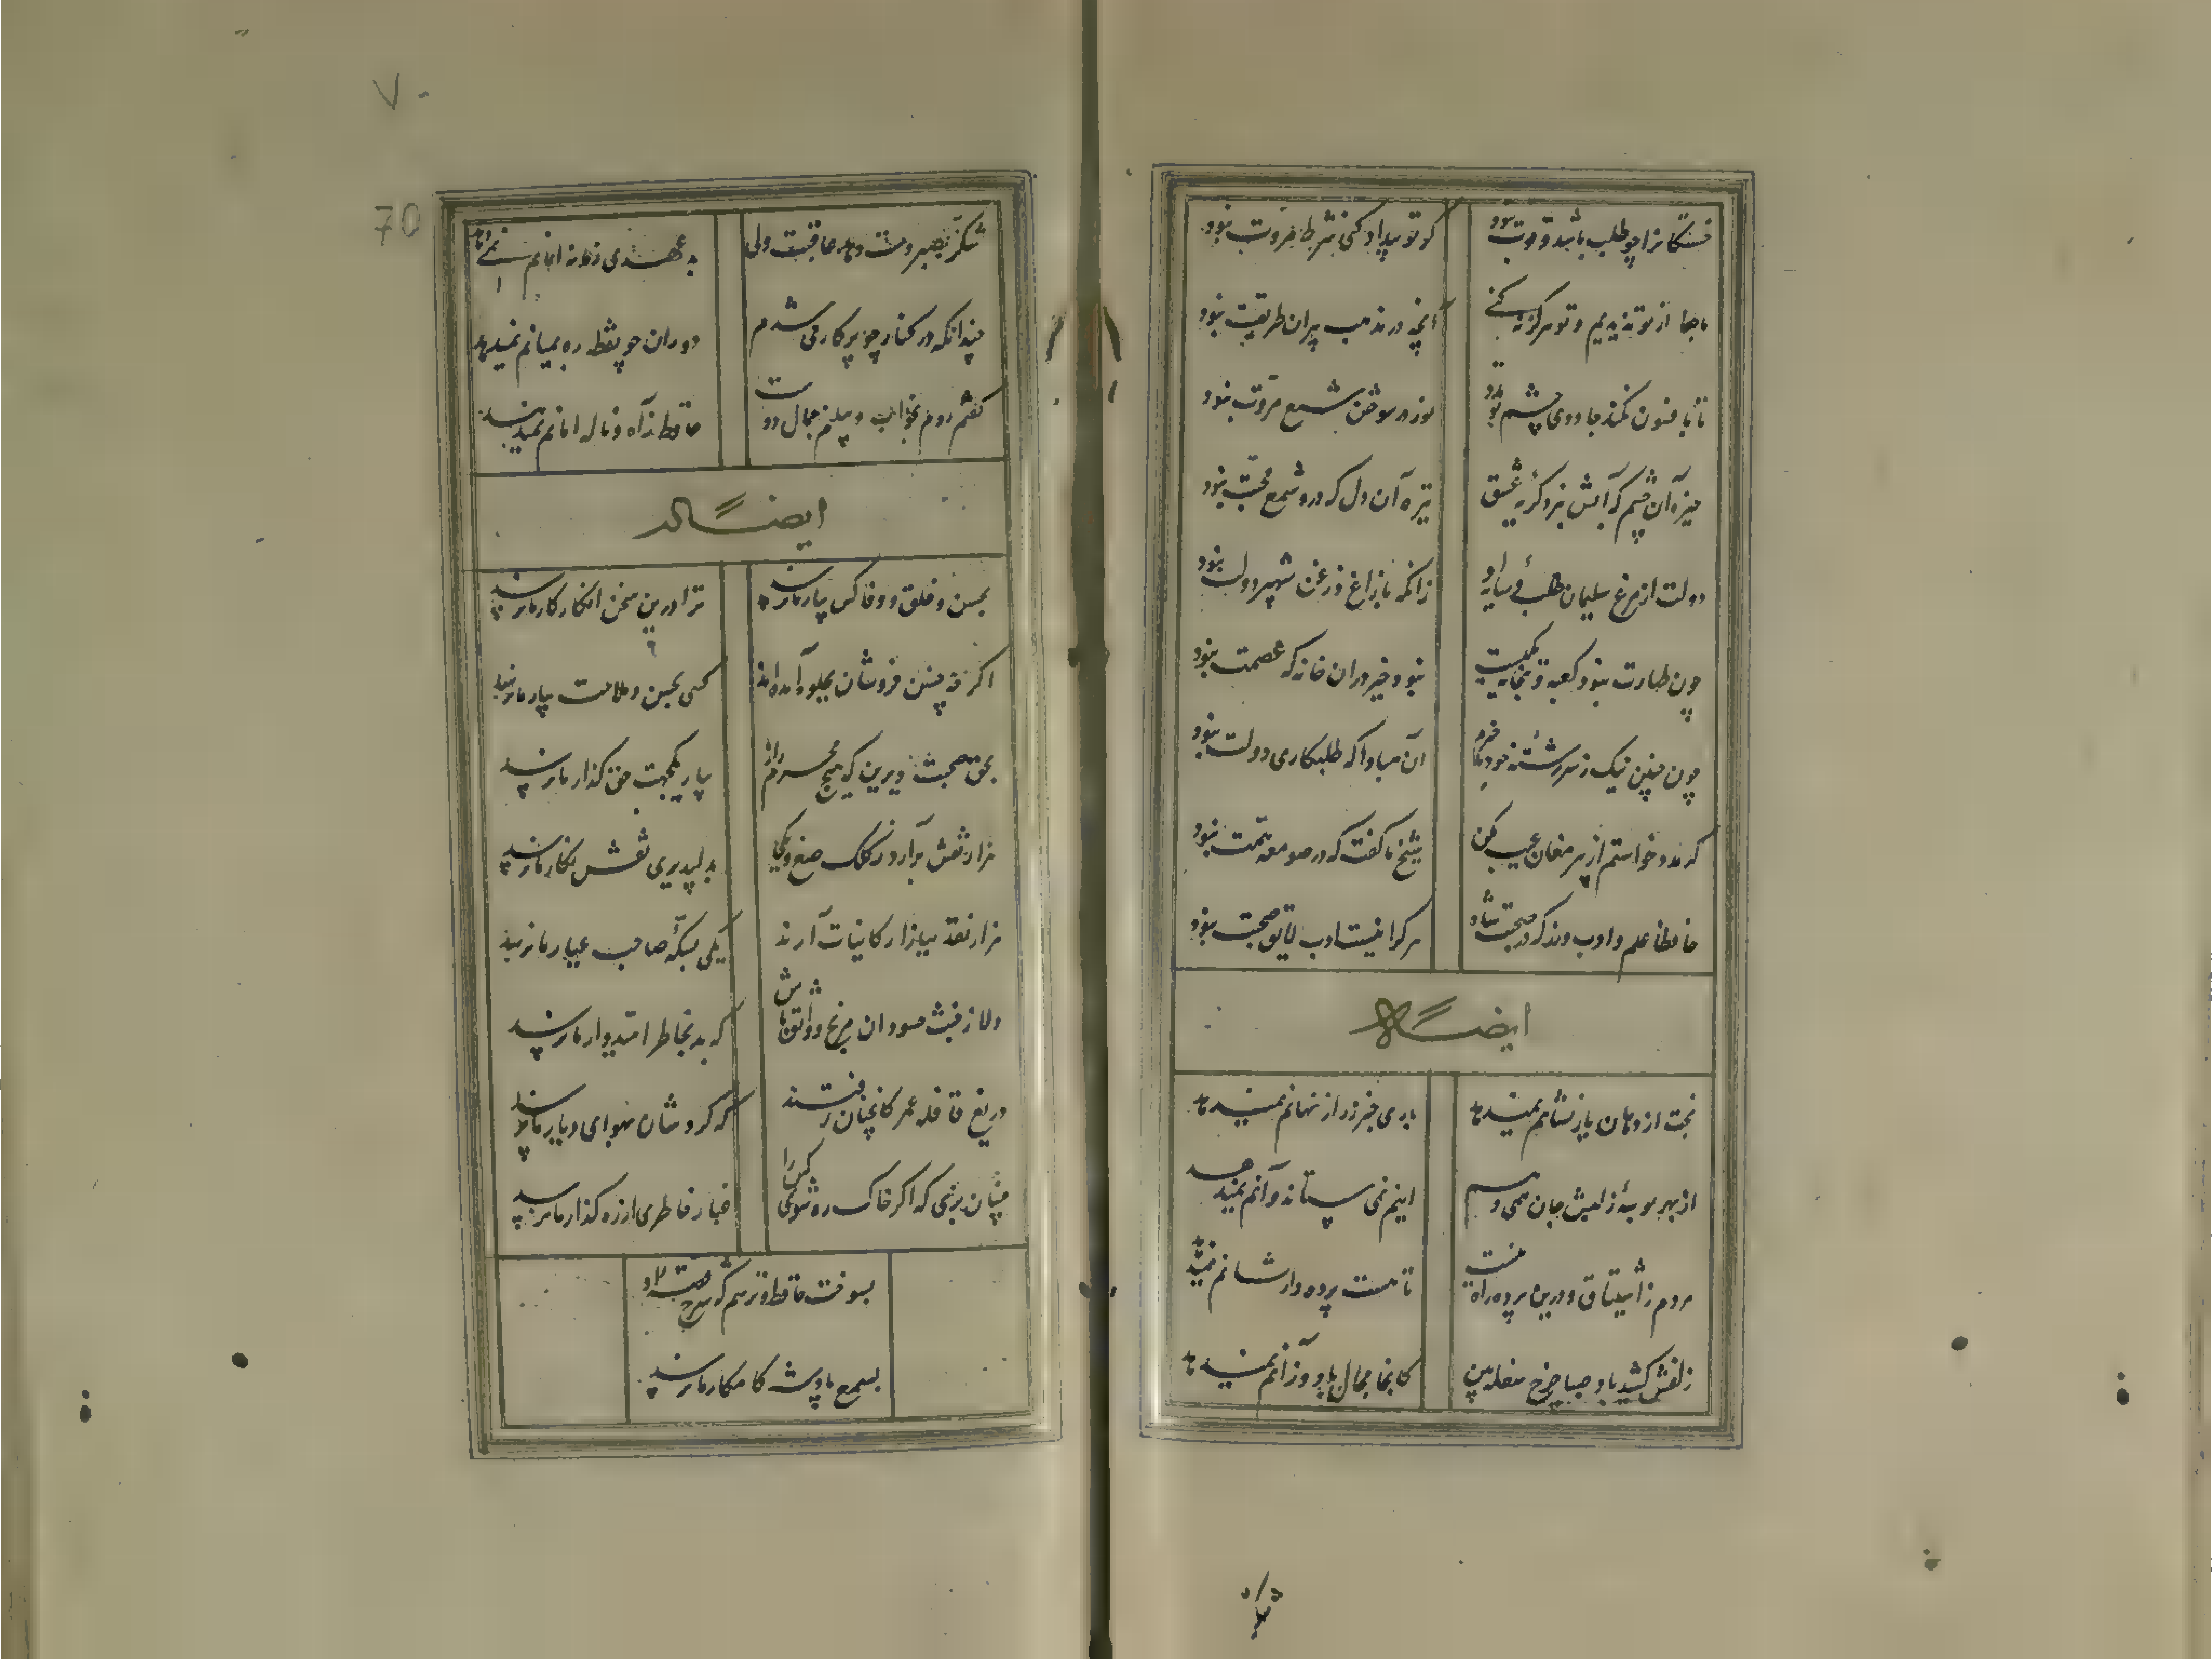 خستگانرا چو طلب باشد و قوت نبود
گر تو بیداد کنی شرط مروت نبود
ما جفا از تو ندیدیم و تو هرگز نکنی
آنچه در مذهب پیران طریقت نبود
تا بافسون نکند جادوی چشم تو مدد
نور در سوختن شمع مروت نبود
خیره آن چشم که آبش نبرد گریه عشق
تیره آن دل که درو شمع محبت نبود
دولت از مرغ سلیمان طلب و سایه او
زانکه با زاغ و زغن شهپر دولت نبود
چون طهارت نبود کعبه و بتخانه یکیست
نبود خیر دران خانه که عصمت نبود
چون چنین نیک ز سررشته خود بیخبرم
آن مبادا که طلبکاری دولت نبود
گر مدد خواستم از پیر مغان عیب مکن
شیخ ما گفت که در صومعه همت نبود
حافظا علم و ادب ورز که در صحبت شاه
هر کرا نیست ادب لایق صحبت نبود
ایضاً له
بخت از دهان یار نشانم نمیدهد
یاری خبر ز راز نهانم نمیدهد
از بهر بوسهٔ ز لبش جان همی دهم
اینم نمی ستاند و آنم نمیدهد
مردم ز اشتیاق و درین پرده راه نیست
تا هست پرده دار نشانم نمیدهد
زلفش کشید باد صبا چرخ سفله بین
کانجا مجال باد وزانم نمیدهد
شکر
۷۰
70
شکر بصبر دست دهد عاقبت ولی
بد عهدی زمانه امانم نمیدهد
چندانکه در کنار چو پرکار می شدم
دوران چو نقطه ره بمیانم نمیدهد
گفتم روم بخواب و ببینم جمال دوست
حافظ ز آه و ناله امانم نمیدهد
ایضاً له
بحسن و خلق و وفا کس بیار ما نرسد
ترا درین سخن انکار کار ما نرسد
اگر چه حسن فروشان بجلوه آمده اند
کسی بحسن و ملاحت بیار ما نرسد
بحق صحبت دیرین که هیچ محرم راز
بیار یکجهت حق گذار ما نرسد
هزار نقش برآرد ز کلک صنع و یکی
بدلپذیری نقش نگار ما نرسد
هزار نقد ببازار کاینات آرند
یکی بسکهٔ صاحب عیار ما نرسد
دلا ز خبث حسودان مرنج و واثق باش
که بد بخاطر امیدوار ما نرسد
دریغ قافله عمر کانچنان رفتند
که گردشان بهوای دیار ما نرسد
چنان بزی که اگر خاک ره شوی کس را
غبار خاطری از رهگذار ما نرسد
بسوخت حافظ و ترسم که شرح قصه او
بسمع پادشه کامکار ما نرسد